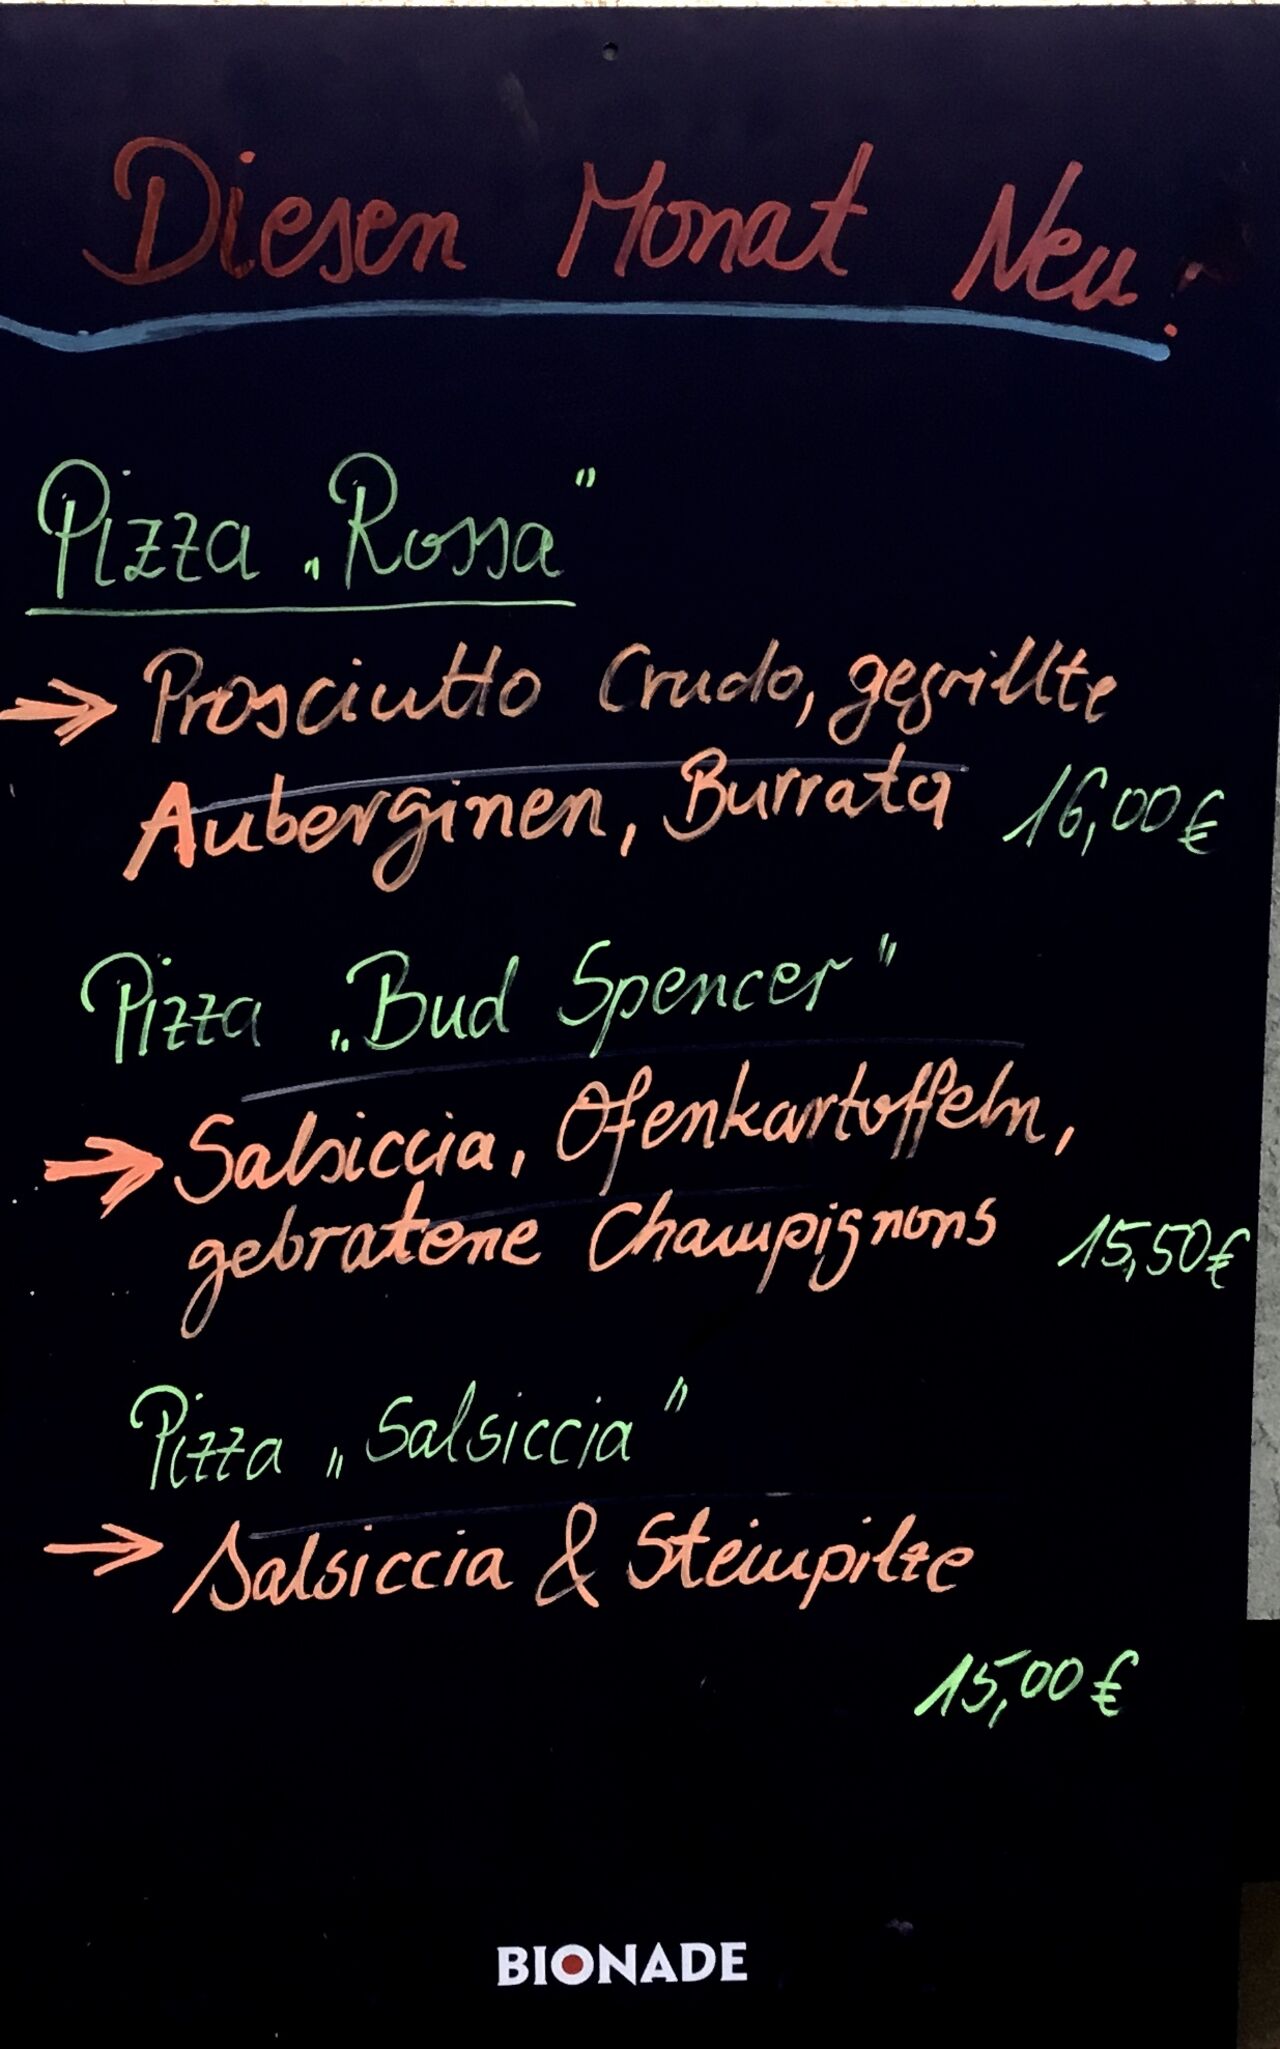 Diesen Monat Neu!
Pizza „Rossa"
Prosciutto Crudo, gegrillte
Auberginen, Burrata 16,00€
Pizza „Bud Spencer"
Salsiccia, Ofenkartoffeln,
gebratene Champignons 15,50€
Pizza „Salsiccia"
Salsiccia & Steinpilze
15,00€
BIONADE